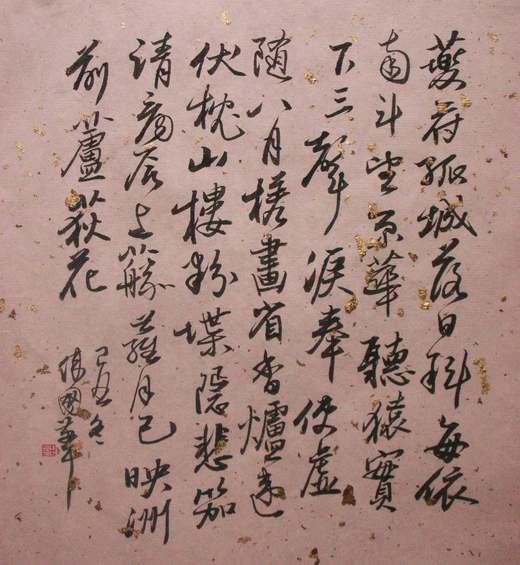 夔府孤城落日斜每依
南斗望京華聽猿實
下三聲淚奉使虛
隨八月槎畫省香爐違
伏枕山樓粉堞隱悲笳
請看石上籐蘿月已映洲
前蘆荻花
己丑冬
國華